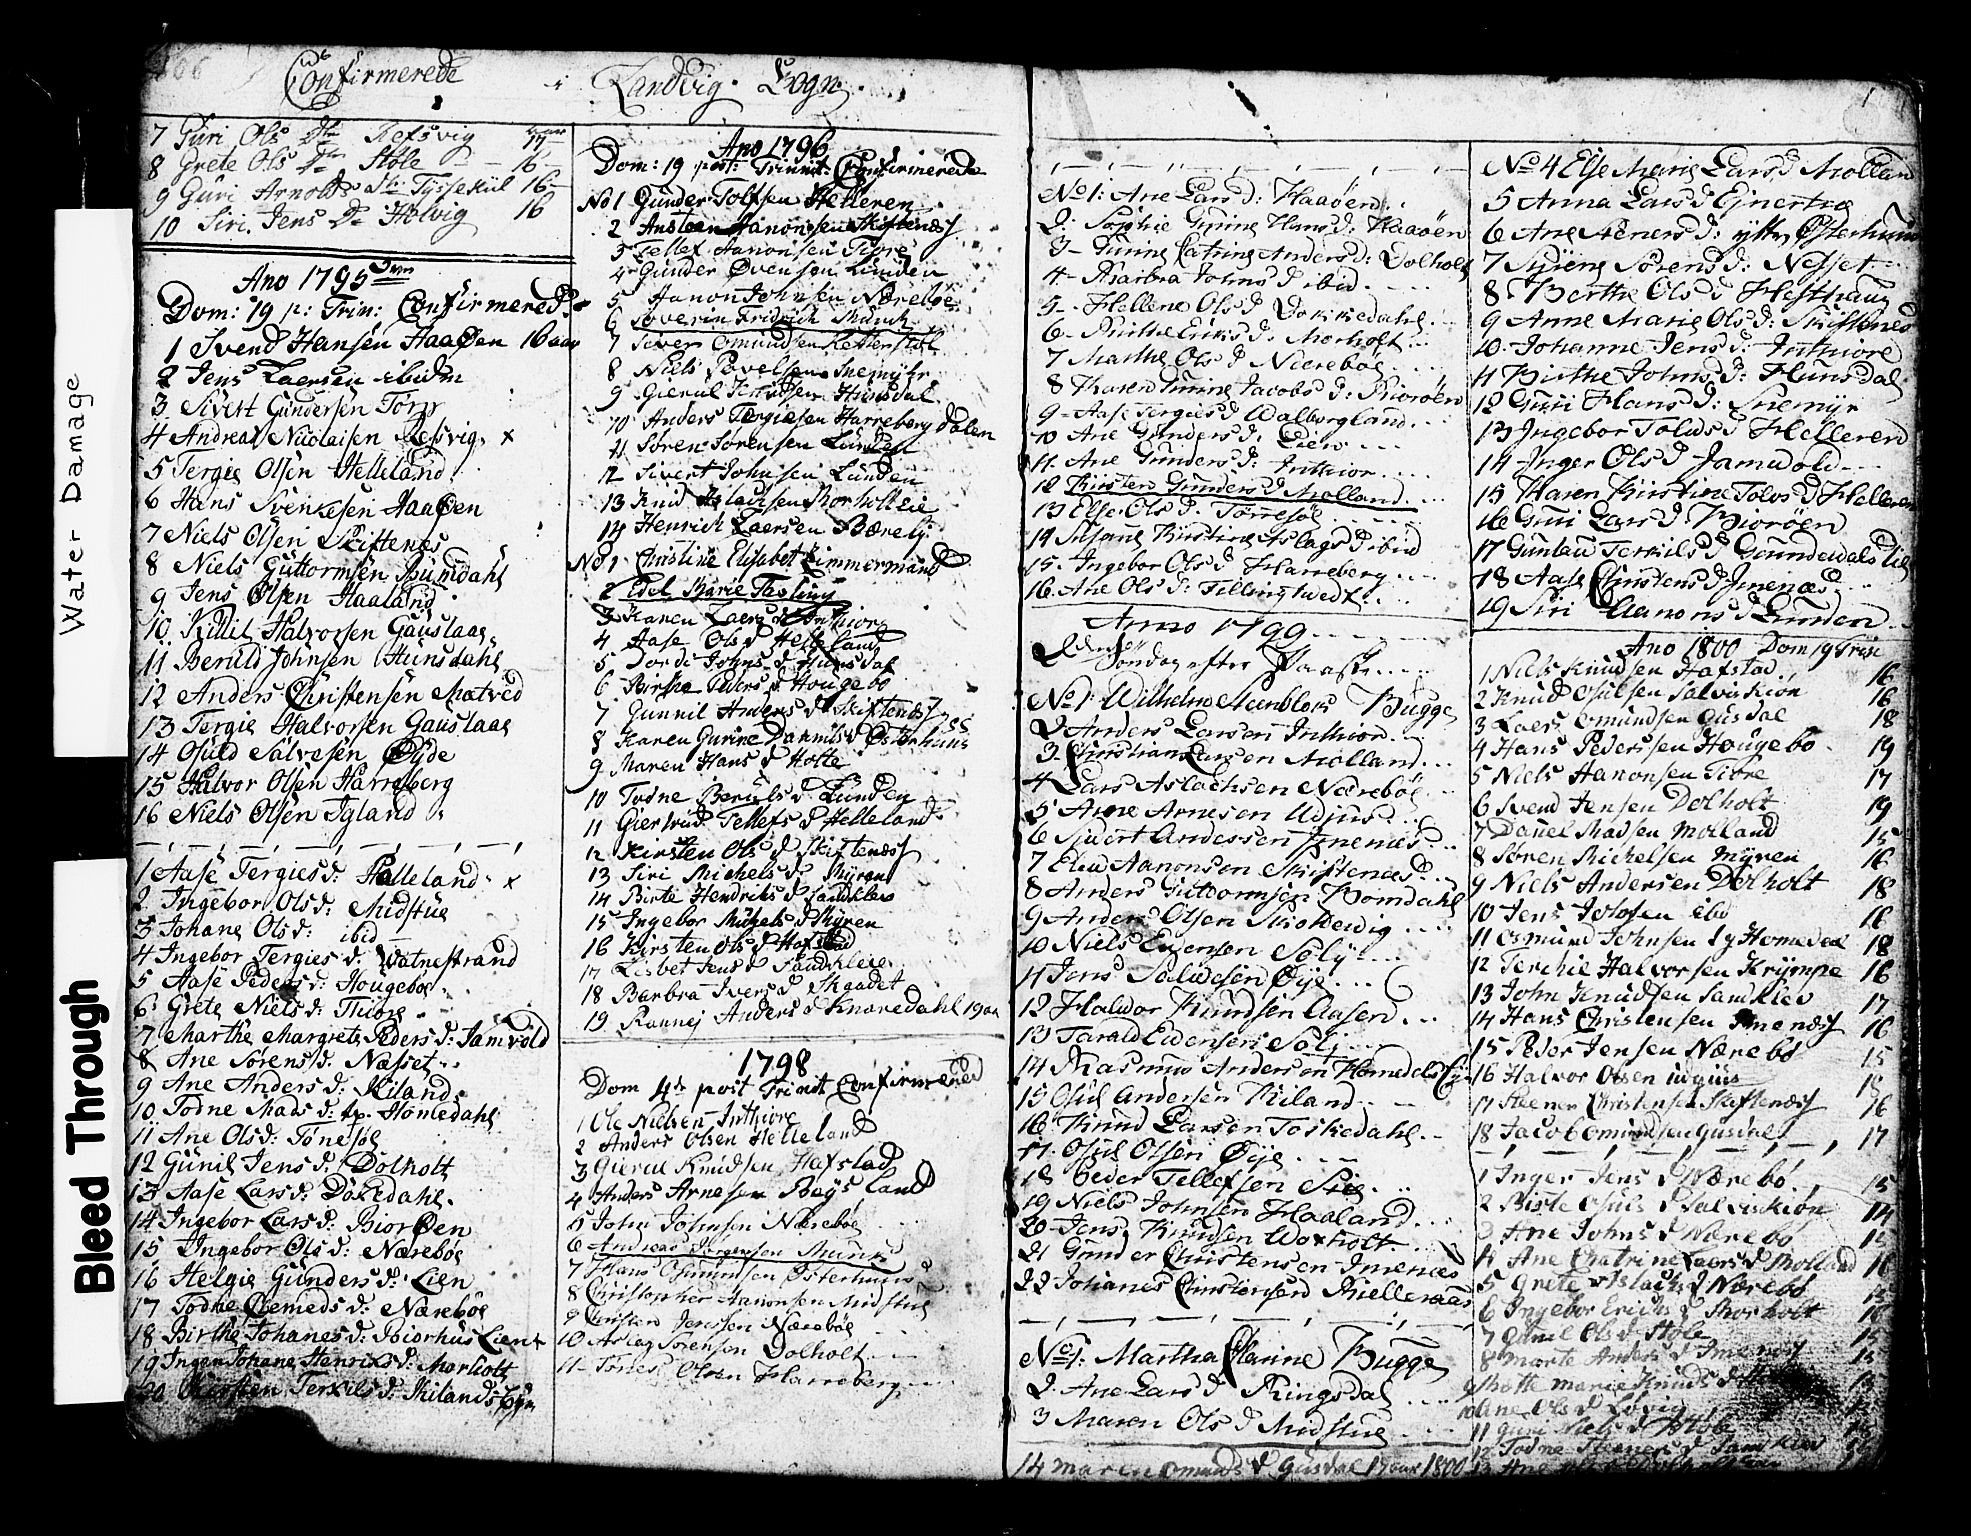 Water Damage
Bleed Through
Confirmerede i Landvig Sogn
7 Guri Ols Dtr Refsvig 17
8 Grete Ols Dr Støle 16
9 Guri Arnolds Dtr Tyssekiil 16
10 Siri Jens Dr Holvig 16
Ano 1795
Dom: 19 p: Trin: Confirmerede
1 Svend Hansen Haaøen 16 aar
2 Jens Laersen ibidm
3 Sivert Gundersen Torp
4 Andreas Nicolaisen Refsvig x
5 Tergie Olsen Helleland
6 Hans Svenkesen Haaøen
7 Niels Olsen Skiftenes
8 Niels Guttormsen Bumdahl
9 Jens Olsen Haaland
10 Kittil Halvorsen Gauslaae
11 Beruld Johnsen Hunsdahl
12 Anders Christensen Mætved
13 Tergie Halvorsen Gauslaae
14 Osuld Salvesen Øyde
15 Halvor Olsen Harreberg
16 Niels Olsen Igland
1 Aase Tergies d: Helleland x
2 Ingebor Ols d: Midstue
3 Johane Ols d: ibid
4 Ingebor Tergies d: Vatnestrand
5 Aase Peders d: Hougeboe
6 Grete Niels d: Tiore
7 Marthe Margrete Peders d: Jamvold
8 Ane Sørens d: Næsset
9 Ane Anders d: Kiland
10 Todne Mads d: Homledahl
11 Ane Ols d: Tønesøl
12 Gunil Jens d: Dolholt
13 Aase Lars d: Dokedahl
14 Ingebor Lars d: Biorøen
15 Ingebor Ols d: Nærebøe
16 Helgie Gunders d: Lien
17 Todne Clemeds d: Nærebøe
18 Birthe Johanes d: Biorhus Lien
19 Ingen Johane Henriks d: Morholt
20 Kirsten Terkils d: Kilands
Ano 1796
Dom: 19 post: Trinit: Confirmerede
No 1 Gunder Tolfsen Helleren
2 Ansteen Aanonsen Skiftenæs
3 Tellef Aanonsen Tiore
4 Gunder Øvensen Lunden
5 Aanon Johnsen Nærebøe
6 Severin Fridrich Munch
7 Siver Omundsen
8 Niels Povelsen Snemyr
9 Gierul Knudsen Hunsdal
10 Anders Tergiesen Harreberg dalen
11 Søren Sørensen Lunden
12 Sivert Johnsen Lunden
13 Knud Aslachsen Morholt
14 Henrich Laersen Bærely
No 1 Christine Elisabet Zimmermand
2 Edel Marie Fasting
3 Karen Laers d Inthiore
4 Aase Ols d Helleland
5 Dorde Johns d Hunsdal
6 Birthe Peders d Hougebo
7 Gunnil Anders d Skiftenæs
8 Karen Gurine Danniels d Østerhuus
9 Maren Hans d Holte
10 Todne Beruls d Lunden
11 Giertrud Tellefs d Helleland
12 Kirsten Ols d Skiftenæs
13 Siri Michels d Myren
14 Birte Hendriks d Landklev
15 Ingebor Michels d Myren
16 Kirsten Ols d Hafstad
17 Lisbet Jens d Sandkleve
18 Barbra Ivers d Skaadet
19 Rannej Anders d Knaredahl 19 aar
1798
Dom 4de post Trinit Confirmerede
1 Ole Nielsen Inthiore
2 Anders Olsen Helleland
3 Gierul Knudsen Hafstad
4 Anders Arnesen Røysland
5 John Johnsen Nærebøe
6 Andreas Jørgensen Munk
7 Hans Osmundsen Østerhuus
8 Christopher Aanonsen Midstue
9 Christen Jenssen Nærebøe
10 Aslag Sørensen Dolholt
11 Tønes Olsen Harreberg
No 1: Ane Lars d: Haaøen
2 Sophie Gurine Hans d: Haaøen
3 Gurine Catrine Anders d: Dolholt
4 Barbra Johns d ibid
5 Hellene Ols d Dokkedahl
6 Birthe Eriks d: Morholt
7 Marthe Ols d Nærebøe
8 Karen Gurine Jacobs d: Biorøen
9 Aase Tergies d Walborgland
10 Ane Gunders d: Lien
11 Ane Gunders d: Inthior
12 Kirsten Gunders d Molland
13 Else Ols d Tørresøl
14 Susane Kirstine Aslags d ibid
15 Ingebor Ols d Harreberg
16 Ane Ols d: Fellingtvedt
Anno 1799
Søndag efter Paaske
No 1: Wilhelm Steenbloks Bugge
2 Anders Larsen Inthior
3 Christian Larsen Molland
4 Lars Aslachsen Nærebøe
5 Arne Arnesen Udjus
6 Sjuert Anderssen Imenes
7 Elew Aanonsen Skiftenæs
8 Anders Guttormsen Bomdahl
9 Anders Olsen Skottevig
10 Niels Evensen Søly
11 Jens Salwesen Øye
12 Halwor Knudsen Aasen
13 Tarald Evensen Søly
14 Rasmus Andersen Homedals Eje
15 Osul Andersen Kiland
16 Knud Larsen Toskedahl
17 Osul Olsen Øye
18 Peder Tellefsen Sie
19 Niels Johnsen Haaland
20 Jens Knudsen Woxholt
21 Gunder Christensen Imenæs
22 Johanes Christensen Kielleraas
No 1: Martha Hanine Bugge
2 Ane Lars d Ringsdal
3 Maren Ols d Midstue
14 Maren Omunds d Gusdal 17 aar 1800
No 4 Else Marie Lars d Molland
5 Anna Lars d Ejnertve
6 Ane Reners d: ytter Østerhuus
7 Kjøene Sørens d: Nesset
8 Berthe Ols d Hesthaug
9 Anne Marie Ols d: Skiftenes
10 Johanne Jens d: Inthiore
11 Birthe Johns d: Hunsdal
12 Guri Hans d: Snemyr
13 Ingebor Tolws d Helleren
14 Inger Ols d Jamwold
15 Karen Kirstine Tolvs d Helleren
16 Guri Lars d Biorøen
17 Gunlau Terkils d Grundewals
18 Aase Christens d Imenæs
19 Siri Aanons d Lunden
Ano 1800 Dom 19 Trin
1 Niels Knudsen Hafstad 16
2 Knud Osulsen Salviskion 16
3 Laers Osmundsen Gusdal 18
4 Hans Pederssen Hougebo 19
5 Niels Aanonsen Tiore 17
6 Svend Jensen Dolholt 19
7 Daniel Madsen Molland 15
8 Søren Michelsen Myren 16
9 Niels Andersen Dolholt 18
10 Jens Jensen ibid 16
11 Osmund Johnsen Homedal 18
12 Terchie Halvorsen Krympe 16
13 John Knudsen Landklev 17
14 Hans Christensen Imenæs 16
15 Peder Jensen Nærebø 15
16 Halvor Olsen Udjus 18
17 Steener Christensen Skiftenæs 16
18 Jacob Omundsen Gusdal 17
1 Inger Jens d Nærebø 15
2 Birte Osuls d Salviskion 14
3 Ane Johns d Nærebø
4 Ane Chatrine Laers d Molland 16
5 Grete Aslachs d Nærebø
6 Ingebor Erichs d Morholt 16
7 Gunil Ols d Støle 15
8 Marte Anders d Imenæs
9 Motte Marie Knuds d
10 Ane Ols d Løvig
11 Guri Niels d Støle
12 Todne Steeners d Landklev
13 Ane